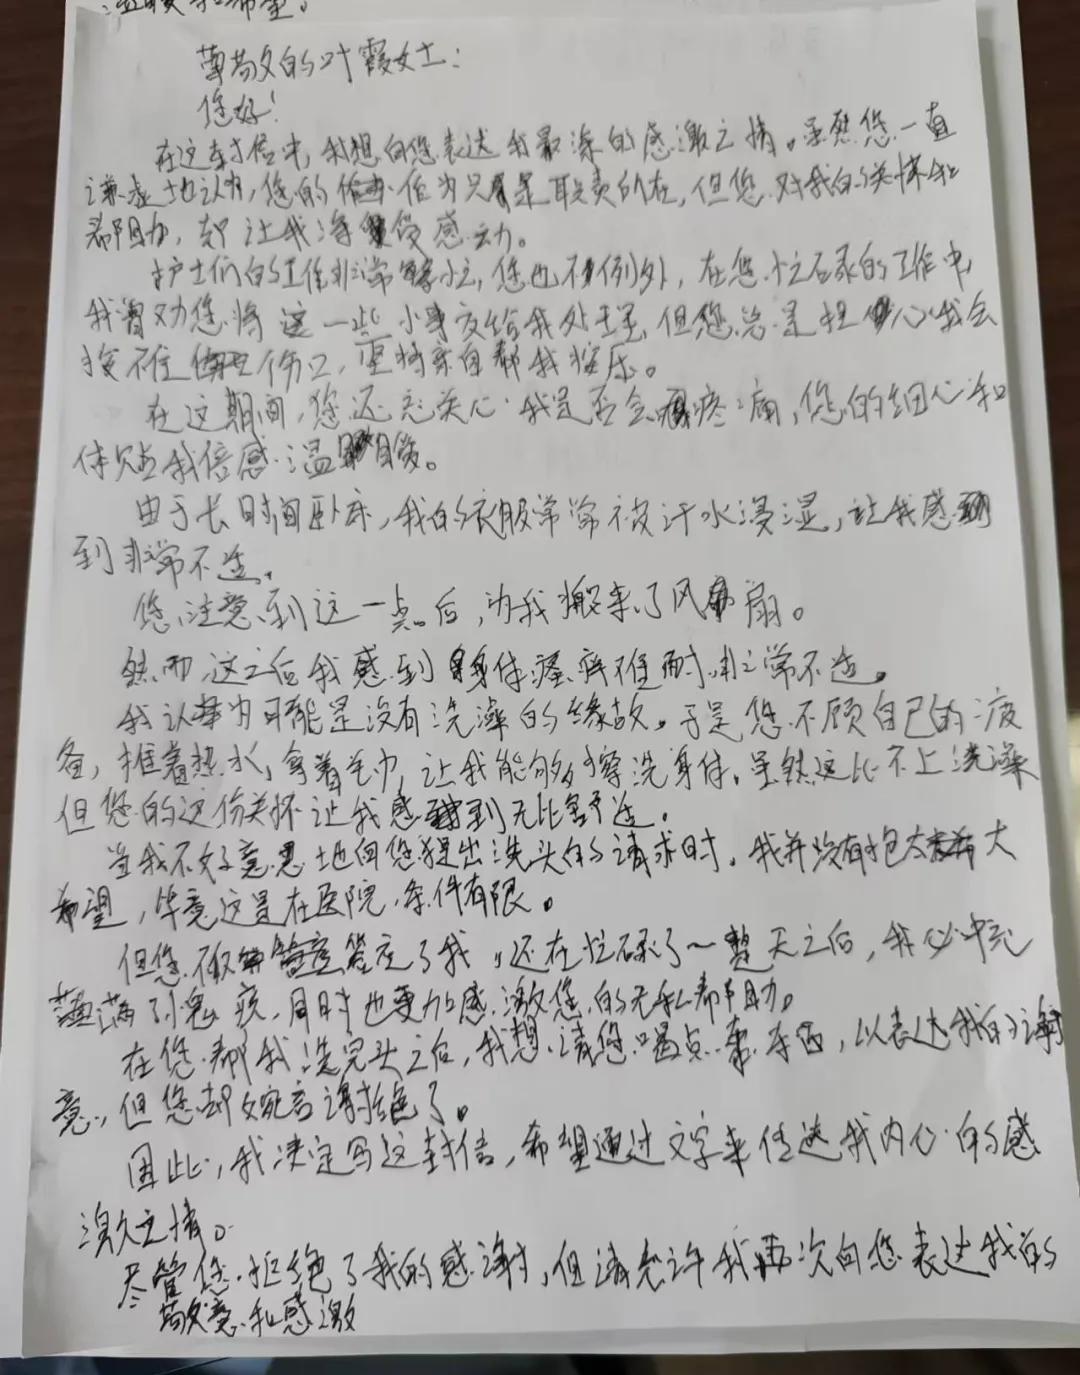 温暖和希望。
尊敬的叶霞女士：
您好！
在这封信中，我想向您表达我最深的感激之情。虽然您一直
谦虚地认为，您的作为只是职责所在，但您对我的关怀和
帮助，却让我深受感动。
护士们的工作非常忙，您也不例外，在您忙碌的工作中
我曾劝您将这一些小事交给我处理，但您总是担心我会
按不住伤口，坚持亲自帮我按压。
在这期间，您还关心我是否会疼痛，您的细心和
体贴我倍感温暖。
由于长时间卧床，我的衣服常常被汗水浸湿，让我感
到非常不适。
您注意到这一点后，为我搬来了风扇。
然而，这之后我感到身体瘙痒难耐，非常不适。
我认为可能是没有洗澡的缘故。于是您不顾自己的疲
惫，推着热水，拿着毛巾，让我能够擦洗身体。虽然这比不上洗澡
但您的这份关怀让我感到无比舒适。
当我不好意思地向您提出洗头的请求时，我并没有抱太大
希望，毕竟这是在医院，条件有限。
但您不仅答应了我，还在忙碌了一整天之后，我心中充
满了愧疚，同时也更加感激您的无私帮助。
在您帮我洗完头之后，我想请您喝点东西，以表达我的谢
意，但您却婉言谢绝了。
因此，我决定写这封信，希望通过文字来传达我内心的感
激之情。
尽管您拒绝了我的感谢，但请允许我再次向您表达我的
敬意和感激